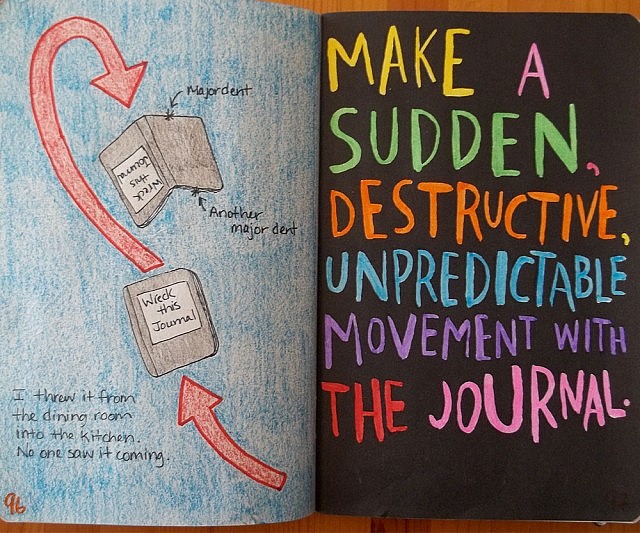 Major dent
Wreck
this
Journal
Another
major dent
Wreck
this
Journal
I threw it from
the dining room
into the kitchen.
No one saw it coming.
96
MAKE A
SUDDEN,
DESTRUCTIVE,
UNPREDICTABLE
MOVEMENT WITH
THE JOURNAL.